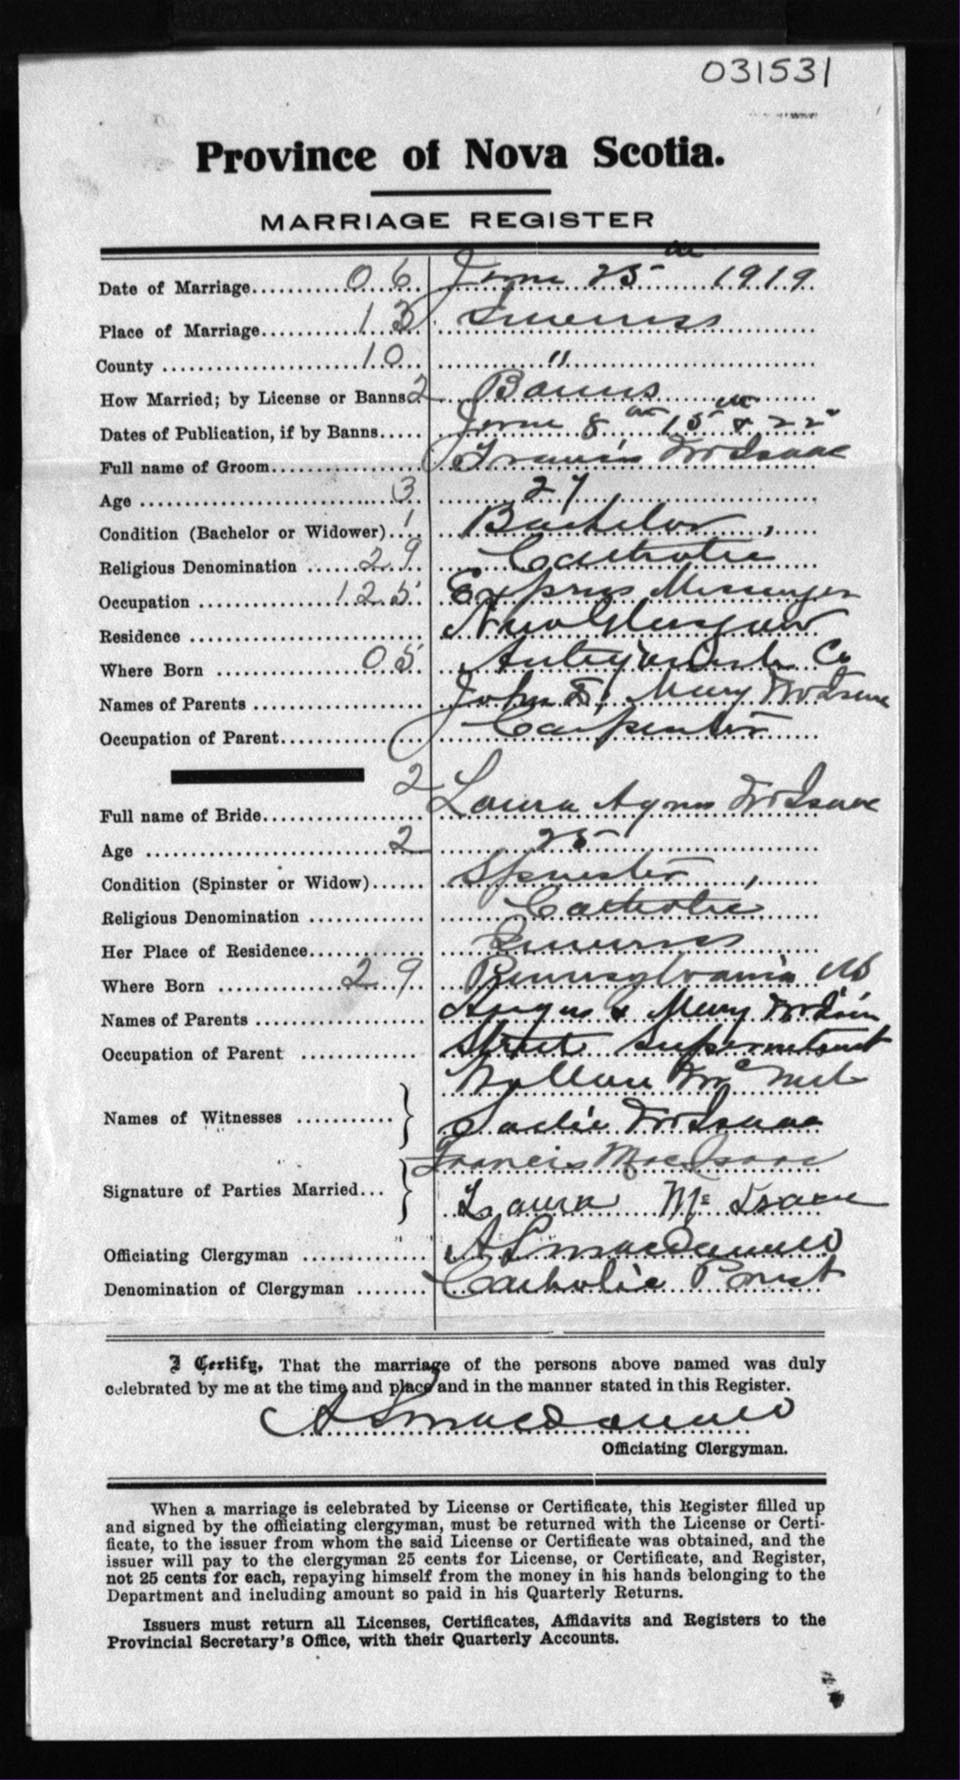 031531
Province of Nova Scotia.
MARRIAGE REGISTER
Date of Marriage 06 June 25th 1919
Place of Marriage 13 Inverness
County 10 "
How Married; by License or Banns 2 Banns
Dates of Publication, if by Banns June 8th 15th & 22"
Full name of Groom Francis McIsaac
Age 3 27
Condition (Bachelor or Widower) 1 Bachelor
Religious Denomination 29 Catholic
Occupation 125 Express Messenger
Residence New Glasgow
Where Born 05 Antigonish Co
Names of Parents John & Mary McIsaac
Occupation of Parent Carpenter
2
Full name of Bride Laura Agnes McIsaac
Age 2 25
Condition (Spinster or Widow) Spinster
Religious Denomination Catholic
Her Place of Residence Inverness
Where Born 29 Pennsylvania US
Names of Parents Angus & Mary
Occupation of Parent Street Superintendent
Mc Neil
Names of Witnesses
Sadie McIsaac
Francis MacIsaac
Signature of Parties Married...
Laura Mc Isaac
Officiating Clergyman A L MacDonald
Denomination of Clergyman Catholic Priest
I Certify, That the marriage of the persons above named was duly
celebrated by me at the time and place and in the manner stated in this Register.
A L MacDonald
Officiating Clergyman.
When a marriage is celebrated by License or Certificate, this Register filled up
and signed by the officiating clergyman, must be returned with the License or Certi-
ficate, to the issuer from whom the said License or Certificate was obtained, and the
issuer will pay to the clergyman 25 cents for License, or Certificate, and Register,
not 25 cents for each, repaying himself from the money in his hands belonging to the
Department and including amount so paid in his Quarterly Returns.
Issuers must return all Licenses, Certificates, Affidavits and Registers to the
Provincial Secretary's Office, with their Quarterly Accounts.